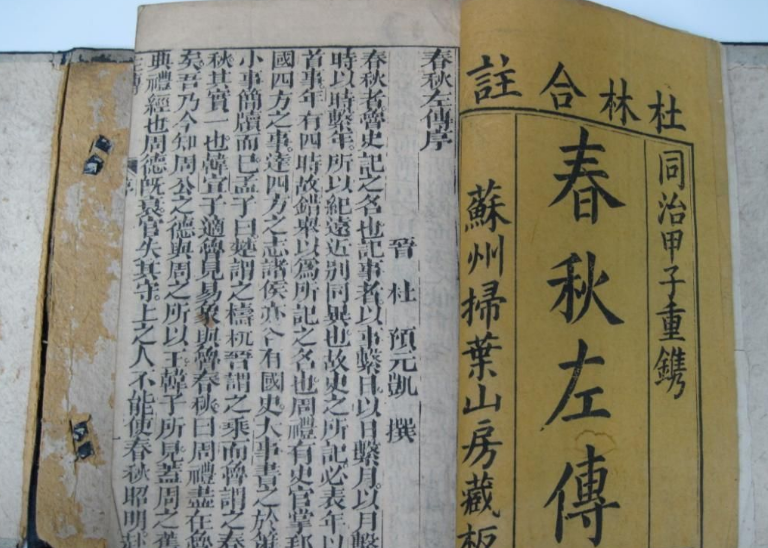 杜林合註
同治甲子重鐫
春秋左傳
蘇州掃葉山房藏板
春秋左傳序
晉 杜 預元凱 撰
春秋者魯史記之名也記事者以事繫日以日繫月以月繫
時以時繫年。所以紀遠近別同異也故史之所記必表年以
首事年有四時故錯舉以爲所記之名也周禮有史官掌邦
國四方之事達四方之志諸侯亦各有國史大事書之於策
小事簡牘而已孟子曰楚謂之檮杌晉謂之乘而魯謂之春
秋其實一也韓宣子適魯見易象與魯春秋曰周禮盡在魯
矣吾乃今知周公之德與周之所以王韓子所見蓋周之舊
典禮經也周德旣衰官失其守。上之人不能使春秋昭明赴